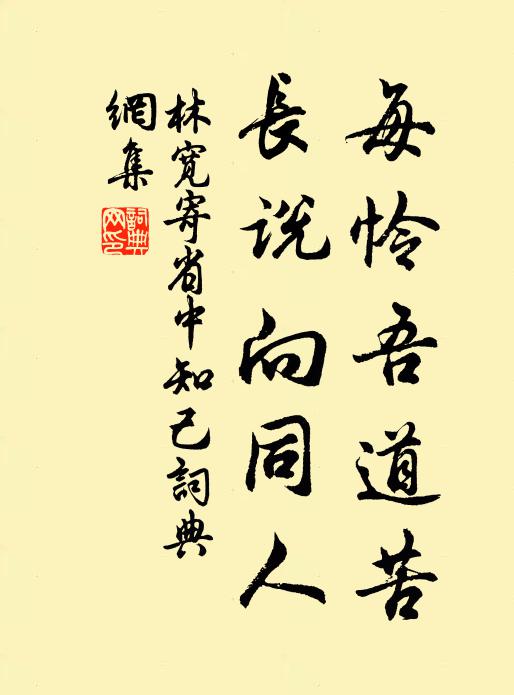 每怜吾道苦
長説向同人
林寛寄省中知己詞典
網集
詞典
网印